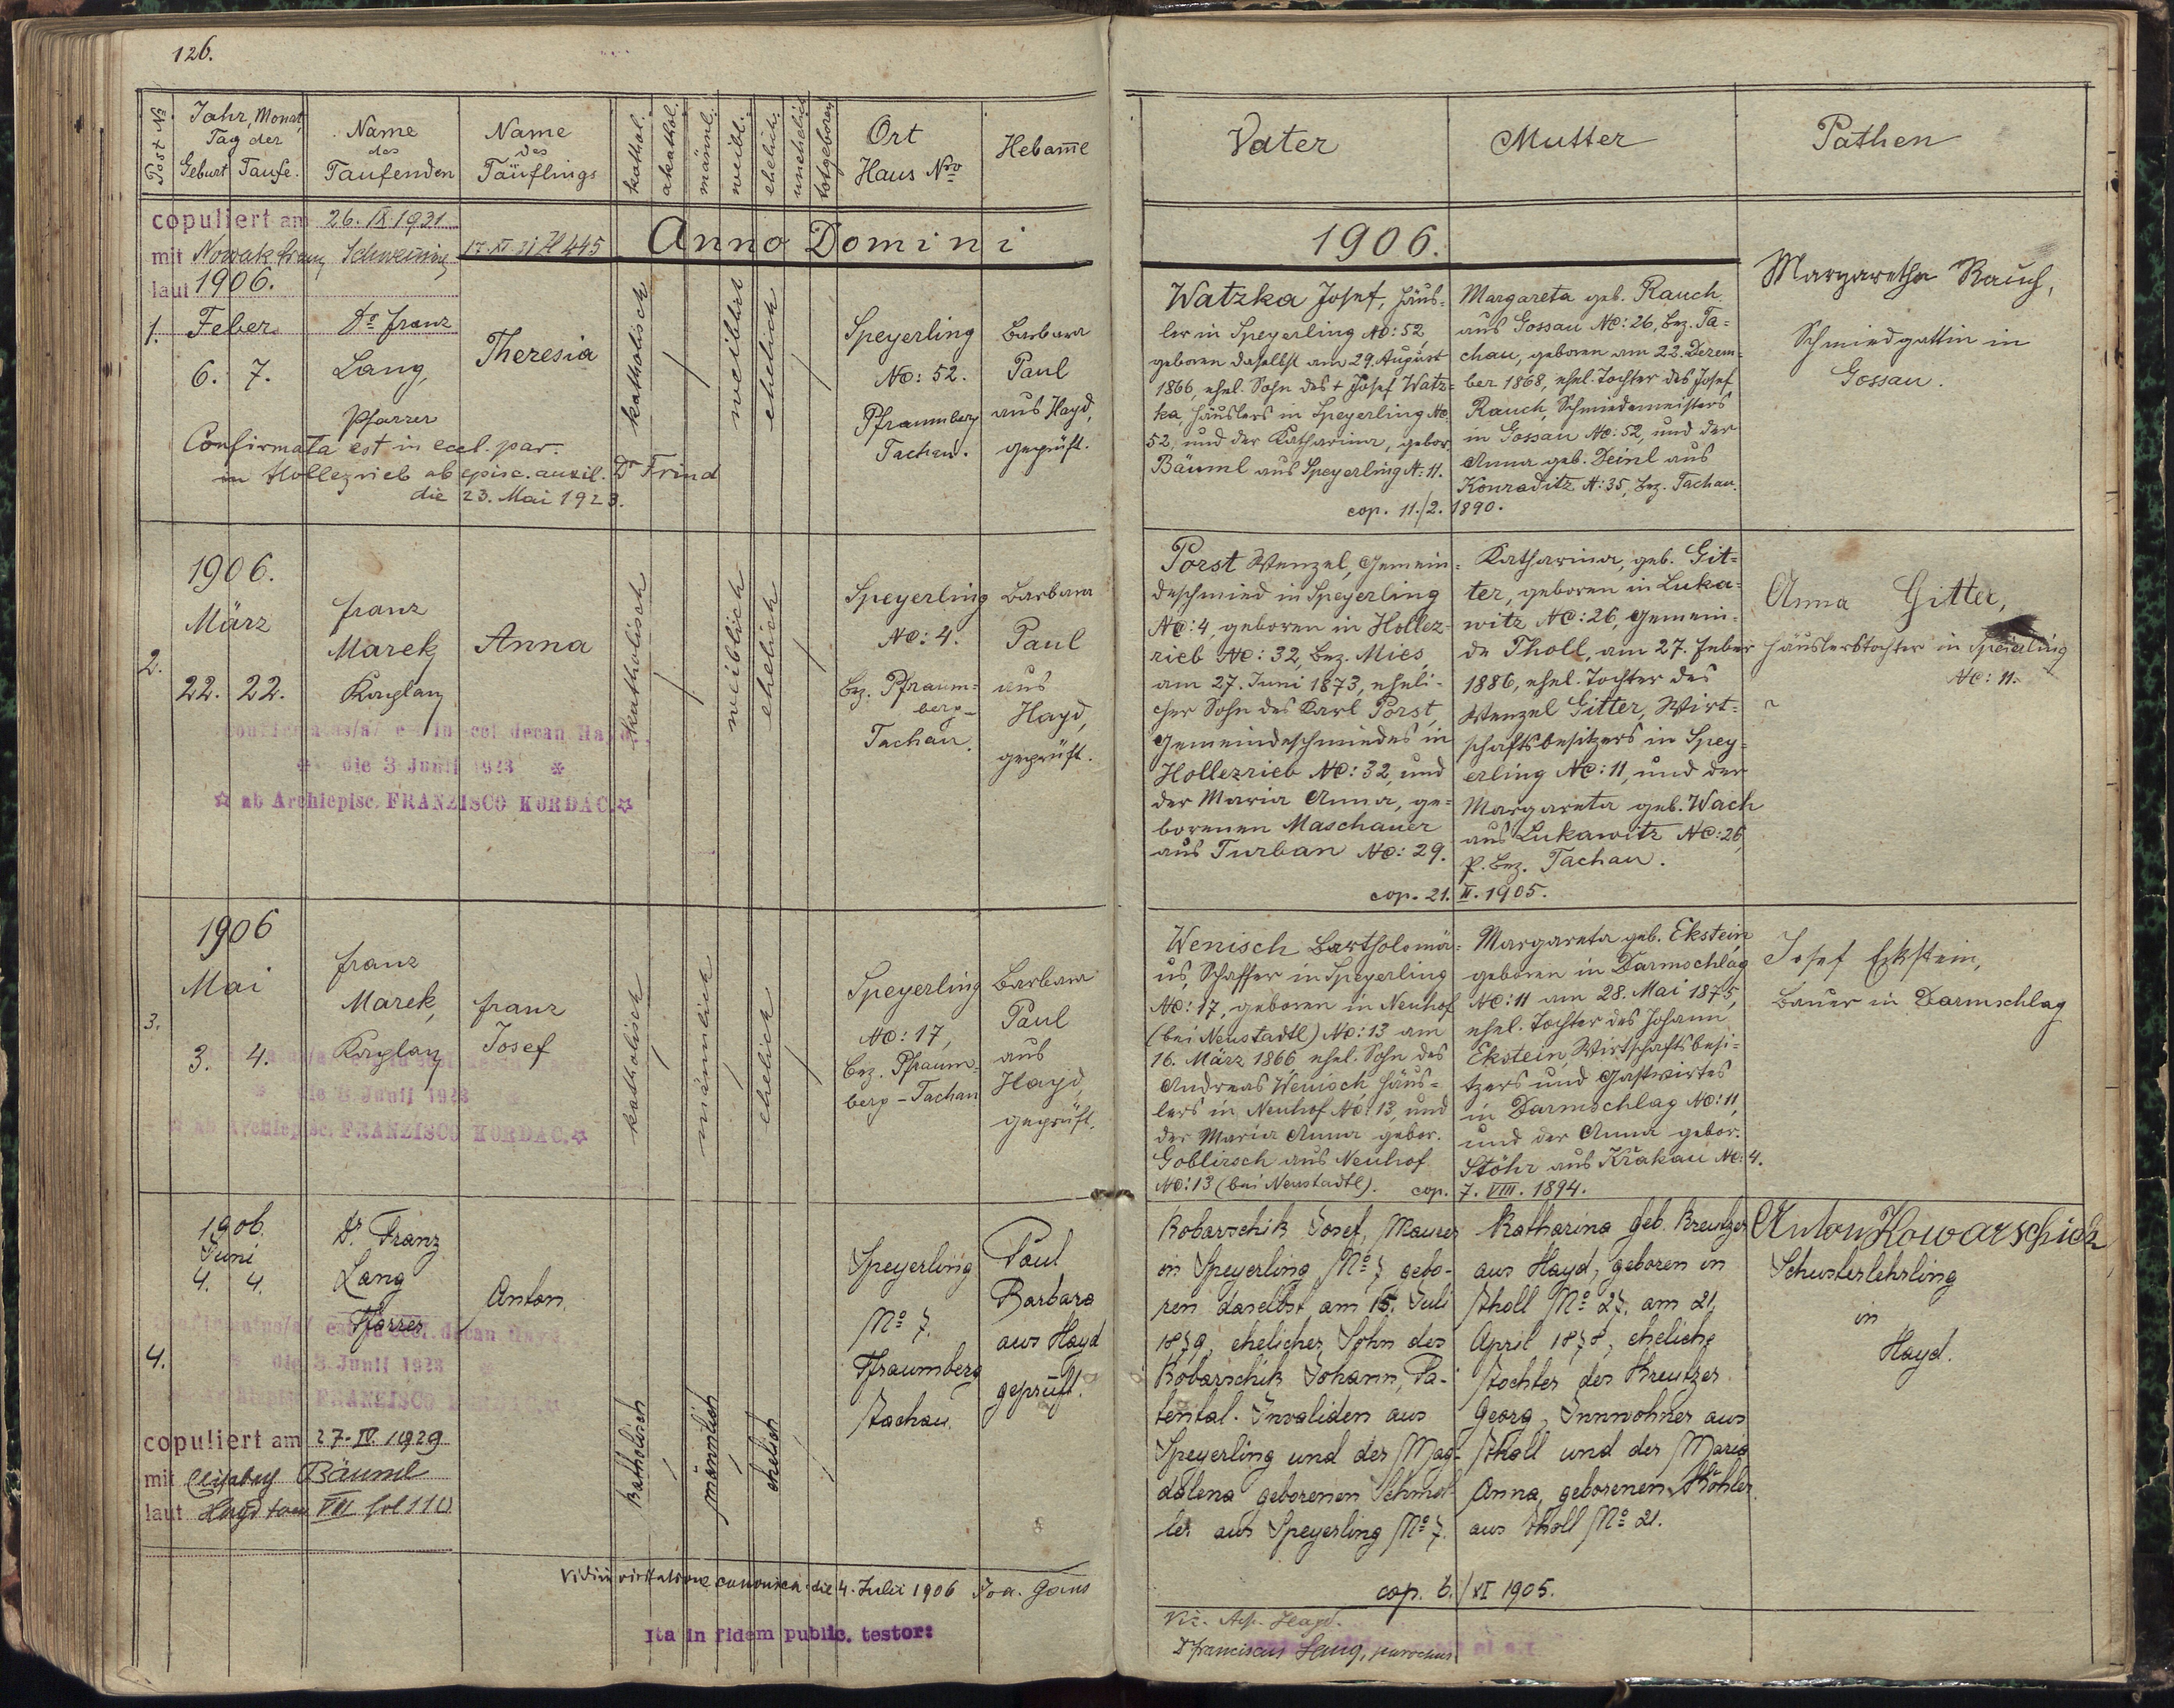 126.
Post No
Jahr, Monat,
Tag der
Geburt Taufe.
Name
des
Taufenden
Name
des
Täuflings
kathol.
akathol.
männl.
weibl.
ehelich.
unehelich
totgeboren
Ort
Haus Nro
Hebamme
Vater
Mutter
Pathen
copuliert am 26. IX. 1931
mit Nowak Franz
laut
17. XI. 31
Anno Domini
1906.
1906.
1. Feber
6. 7.
Dr. Franz
Lang,
Pfarrer
Theresia
katholisch
weiblich
ehelich
Speyerling
No: 52.
Pfraumberg
Tachau.
Barbara
Paul
aus Hayd,
geprüft.
Confirmata est in eccl. par.
in Hollezrieb ab episc. auxil. Dr Frind
die 23. Mai 1923.
Watzka Josef, Häus-
ler in Speyerling No: 52,
geboren daselbst am 29. August
1866, ehel. Sohn des + Josef Watz-
ka, Häuslers in Speyerling No
52, und der Katharina, gebor.
Bäuml aus Speyerling N: 11.
Margareta geb. Rauch
aus Gossau No: 26, Bez. Ta-
chau, geboren am 22. Dezem-
ber 1868, ehel. Tochter des Josef
Rauch, Schmiedemeisters
in Gossau No: 52, und der
Anna geb. Deinl aus
Konraditz N: 35, Bez. Tachau.
cop. 11./2. 1890.
Margaretha Rauch,
Schmiedgattin in
Gossau.
1906.
März
2.
22. 22.
Franz
Marek,
Kaplan
Anna
katholisch
weiblich
ehelich
Speyerling
No: 4.
Bez. Pfraum-
berg -
Tachau.
Barbara
Paul
aus
Hayd,
geprüft.
decan Hayd
die 3 Junii 1923
ab Archiepisc. FRANZISCO KORDAC.
Porst Wenzel, Gemein-
deschmied in Speyerling
No: 4, geboren in Hollez-
rieb No: 32, Bez. Mies,
am 27. Juni 1873, eheli-
cher Sohn des Karl Porst,
Gemeindeschmiedes in
Hollezrieb No: 32, und
der Maria Anna, ge-
borenen Maschauer
aus Turban No: 29.
Katharina, geb. Git-
ter, geboren in Luka-
witz No: 26, Gemein-
de Tholl, am 27. Feber
1886, ehel. Tochter des
Wenzel Gitter, Wirt-
schaftsbesitzers in Spey-
erling No: 11, und der
Margareta geb. Wach
aus Lukawitz No: 26,
p. Bez. Tachau.
cop. 21. II. 1905.
Anna Gitter,
Häuslerstochter in Speierling
No: 11.
1906
Mai
3.
3. 4.
Franz
Marek,
Kaplan
Franz
Josef
katholisch
männlich
ehelich
Speyerling
No: 17,
Bez. Pfraum-
berg - Tachau
Barbara
Paul
aus
Hayd,
geprüft.
die 3 Junii 1923
ab Archiepisc. FRANZISCO KORDAC.
Wenisch Bartholomä-
us, Schaffer in Speyerling
No: 17, geboren in Neuhof
(bei Neustadtl) No: 13 am
16. März 1866 ehel. Sohn des
Andreas Wenisch, Häus-
lers in Neuhof No: 13, und
der Maria Anna gebor.
Goblirsch aus Neuhof
No: 13 (bei Neustadtl).
Margareta geb. Ekstein,
geboren in Darmschlag
No: 11 am 28. Mai 1875,
ehel. Tochter des Johann
Ekstein, Wirtschaftsbesi-
tzers und Gastwirtes
in Darmschlag No: 11,
und der Anna gebor.
Stöhr aus Křakau No: 4.
cop. 7. VIII. 1894.
Josef Eckstein,
Bauer in Darmschlag
1906.
Juni
4. 4.
4.
Dr. Franz
Lang
Pfarrer
Anton.
katholisch
männlich
ehelich
Speyerling
No 7.
Pfraumberg
Tachau.
Paul
Barbara
aus Hayd
geprüft.
decan Hayd
die 3. Junii 1923
FRANZISCO
copuliert am 27. IV. 1929
mit Elisabeth Bäuml
laut Hayd tom VIII fol 110
Kobarschik Josef, Maurer
in Speyerling No 7 gebo-
ren daselbst am 15. Juli
1879, ehelicher Sohn des
Kobarschik Johann, Pa-
tental-Invaliden aus
Speyerling und der Mag-
dalena geborenen Schmol-
ler aus Speyerling No 7.
Katharina geb. Kreutzer
aus Hayd, geboren in
Tholl No 27. am 21.
April 1878, eheliche
Tochter des Kreutzer
Georg, Innwohner aus
Tholl und der Maria
Anna, geborenen Köhler
aus Tholl No 21.
cop. 6./XI 1905.
Anton Kowarschick
Schusterlehrling
in
Hayd.
Vidi in visitatione canonica die 4. Julii 1906 Joa.
Ita in fidem public. testor:
Hayd.
Dr Franciscus Lang, parochus